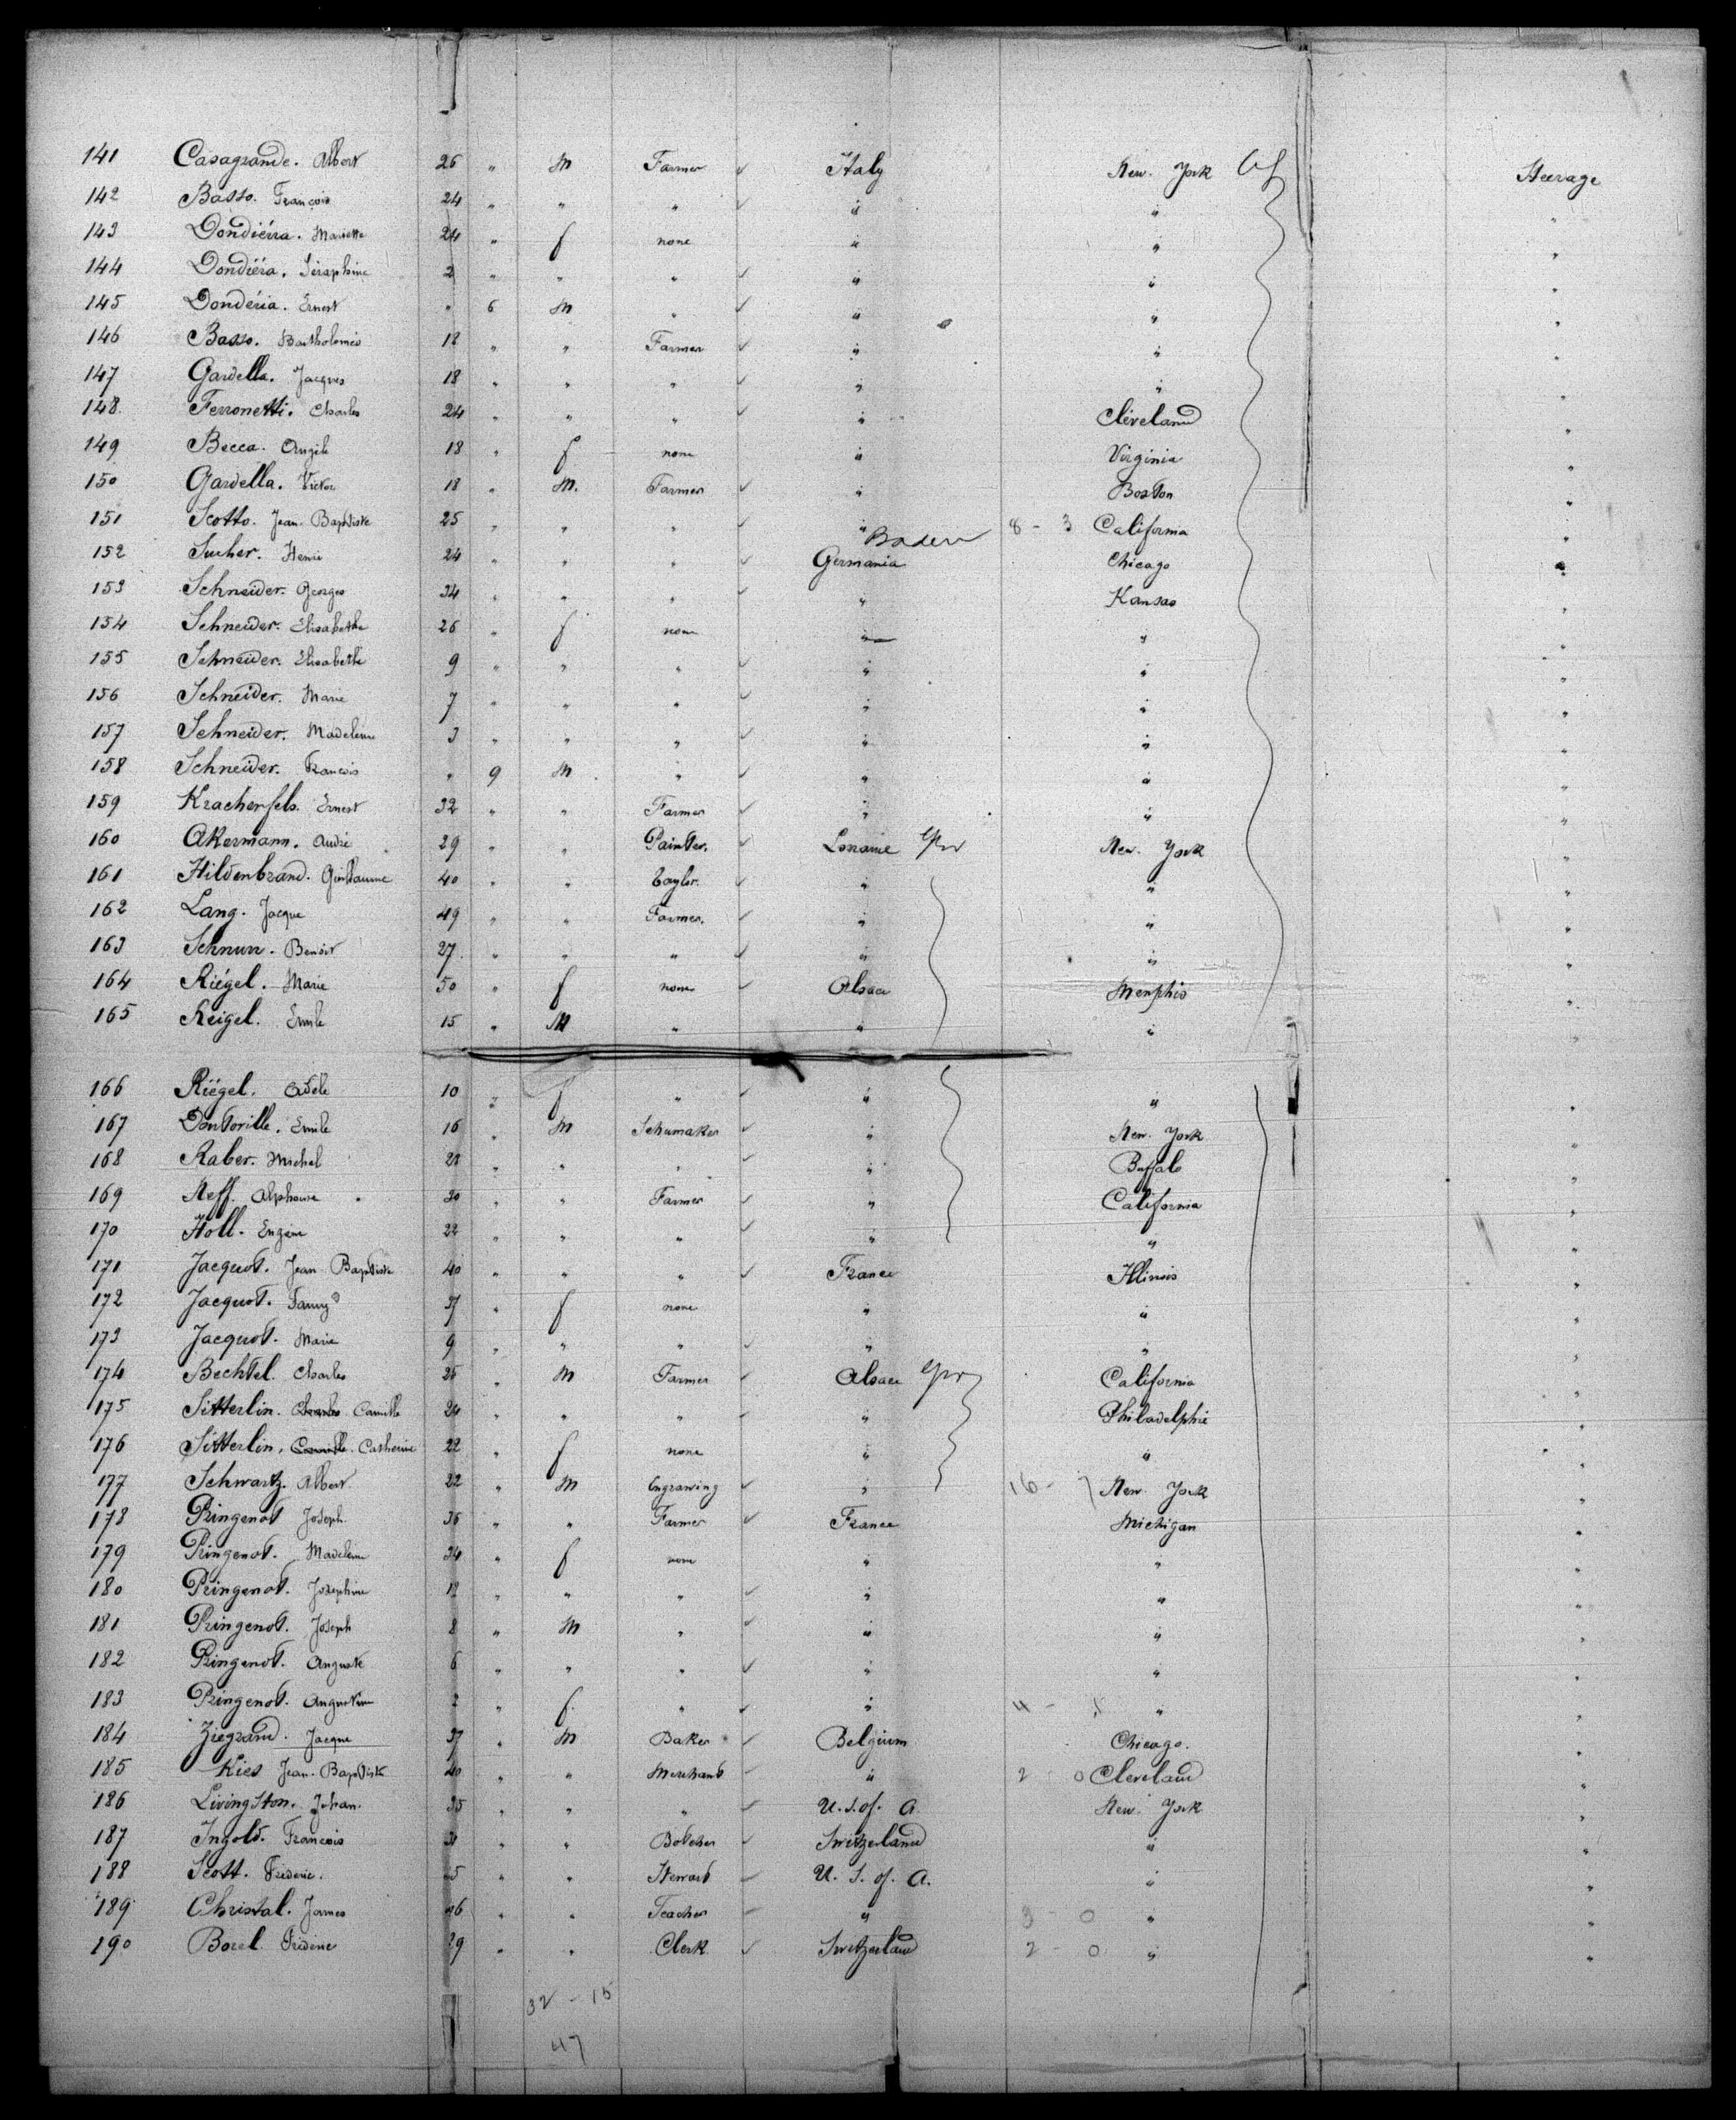 141 Casagrande. Albert 26 " M Farmer Italy New. York Steerage
142 Basso. François 24 " " " " " "
143 Dondiéra. Mariette 24 " f none " " "
144 Dondiéra. Séraphine 2 " " " " " "
145 Dondéria. Ernest " 6 M " " " "
146 Basso. Bartholoméo 18 " " Farmer " " "
147 Gardella. Jacques 18 " " " " " "
148. Ferronetti. Charles 24 " " " " Cleveland "
149 Becca. Angèle 18 " f none " Virginia "
150 Gardella. Victor 18 " M. Farmer " Boston "
151 Scotto. Jean-Baptiste 25 " " " " 8 - 3 California "
Baden
152 Sucher. Henri 24 " " " Germania Chicago "
153 Schneider. Georges 34 " " " " Kansas "
154 Schneider. Elisabethe 26 " f none " " "
155 Schneider. Elisabethe 9 " " " " " "
156 Schneider. Marie 7 " " " " " "
157 Schneider. Madeleine 3 " " " " " "
158 Schneider. François " 9 M " " " "
159 Kracherfels. Ernest 32 " " Farmer " " "
160 Akermann. André 29 " " Painter. Lorraine New. York "
161 Hildenbrand. Guillaume 40 " " Taylor. " " "
162 Lang. Jacque 49 " " Farmer. " " "
163 Schnurr. Benoit 27 " " " " " "
164 Riégel. Marie 50 " f none Alsace Menphis "
165 Reigel. Emile 15 " M " " " "
166 Riégel. Adèle 10 " f " " " "
167 Dontorille. Emile 16 " M Schumaker " New. York "
168 Raber. Michel " " " " Buffalo "
169 Neff. Alphonse 30 " " Farmer " California "
170 Holl. Eugène 22 " " " " " "
171 Jacquot. Jean Baptiste 40 " " " France Illinois "
172 Jacquot. Fanny 37 " f none " " "
173 Jacquot. Marie 9 " " " " " "
174 Bechtel. Charles 25 " M Farmer Alsace California "
175 Sitterlin. Charles Camille 24 " " " " Philadelphie "
176 Sitterlin. Camille. Catherine 22 " f none " " "
177 Schwartz. Albert. 22 " M Engrawing " 16 - 7 New York "
178 Pringenot Joseph. 36 " " Farmer France Michigan "
179 Pringenot. Madeleine 34 " f none " " "
180 Pringenot. Joséphine 12 " " " " " "
181 Pringenot. Joseph 8 " M " " " "
182 Pringenot. Auguste 6 " " " " " "
183 Pringenot. Augustine 2 " f. " " 4 - "
184 Ziegrand. Jacque 37 " M Baker Belgium Chicago. "
185 Kies Jean-Baptiste 40 " " Merchant " 2 0 Cleveland "
186 Livingston. Johan. 35 " " " U.S. of. A. New. York "
187 Ingold. François " " Botcher Switzerland " "
188 Scott. Fréderic. " " Stewart U. S. of. A. " "
189 Christal. James 26 " " Teacher " 3 - 0 " "
190 Borel. Fréderic 29 " " Clerk Switzerland 2 - 0 " "
32 - 15
47